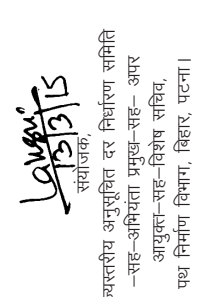 13/3/15
संयोजक,
ज्यस्तरीय अनुसूचित दर निर्धारण समिति
–सह–अभियंता प्रमुख–सह– अपर
आयुक्त–सह–विशेष सचिव,
पथ निर्माण विभाग, बिहार, पटना।